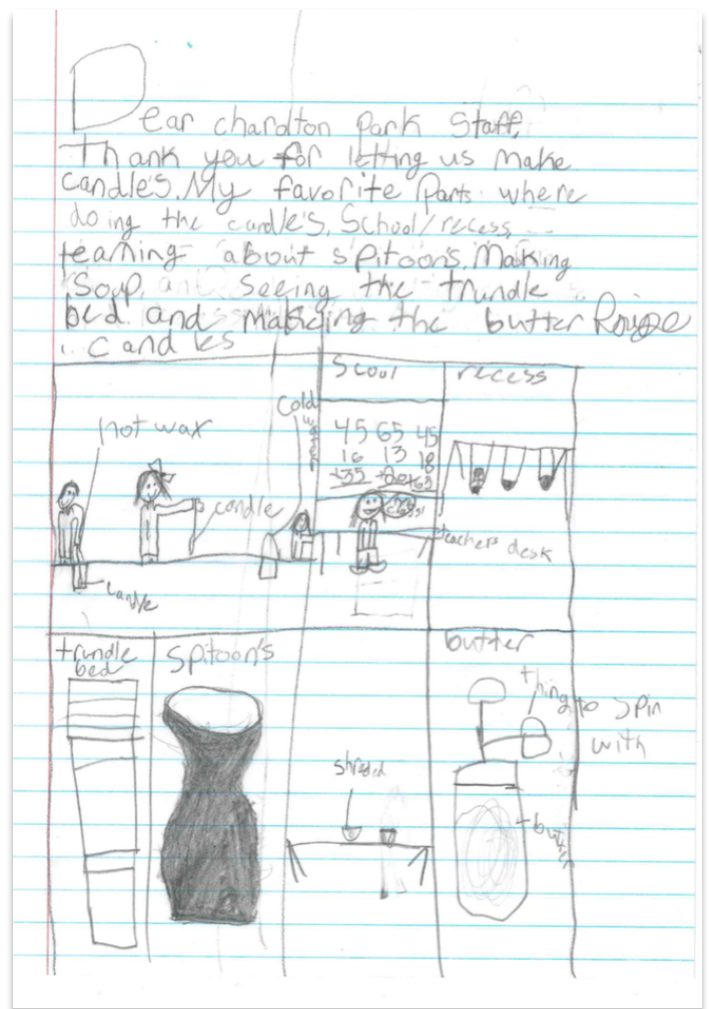 Dear charolton park Staff,
Thank you for letting us make
candle's. My favorite Parts where
doing the candle's, School/recess,
learning about spitoon's. Making
Soup, and seeing the trundle
bed. and making the butter
candles
Scoul
recess
hot wax
cold
candle
candle
45 65 45
16 13 18
teachers desk
trundle
bed
Spitoon's
butter
thing to spin
with
shreded
butter